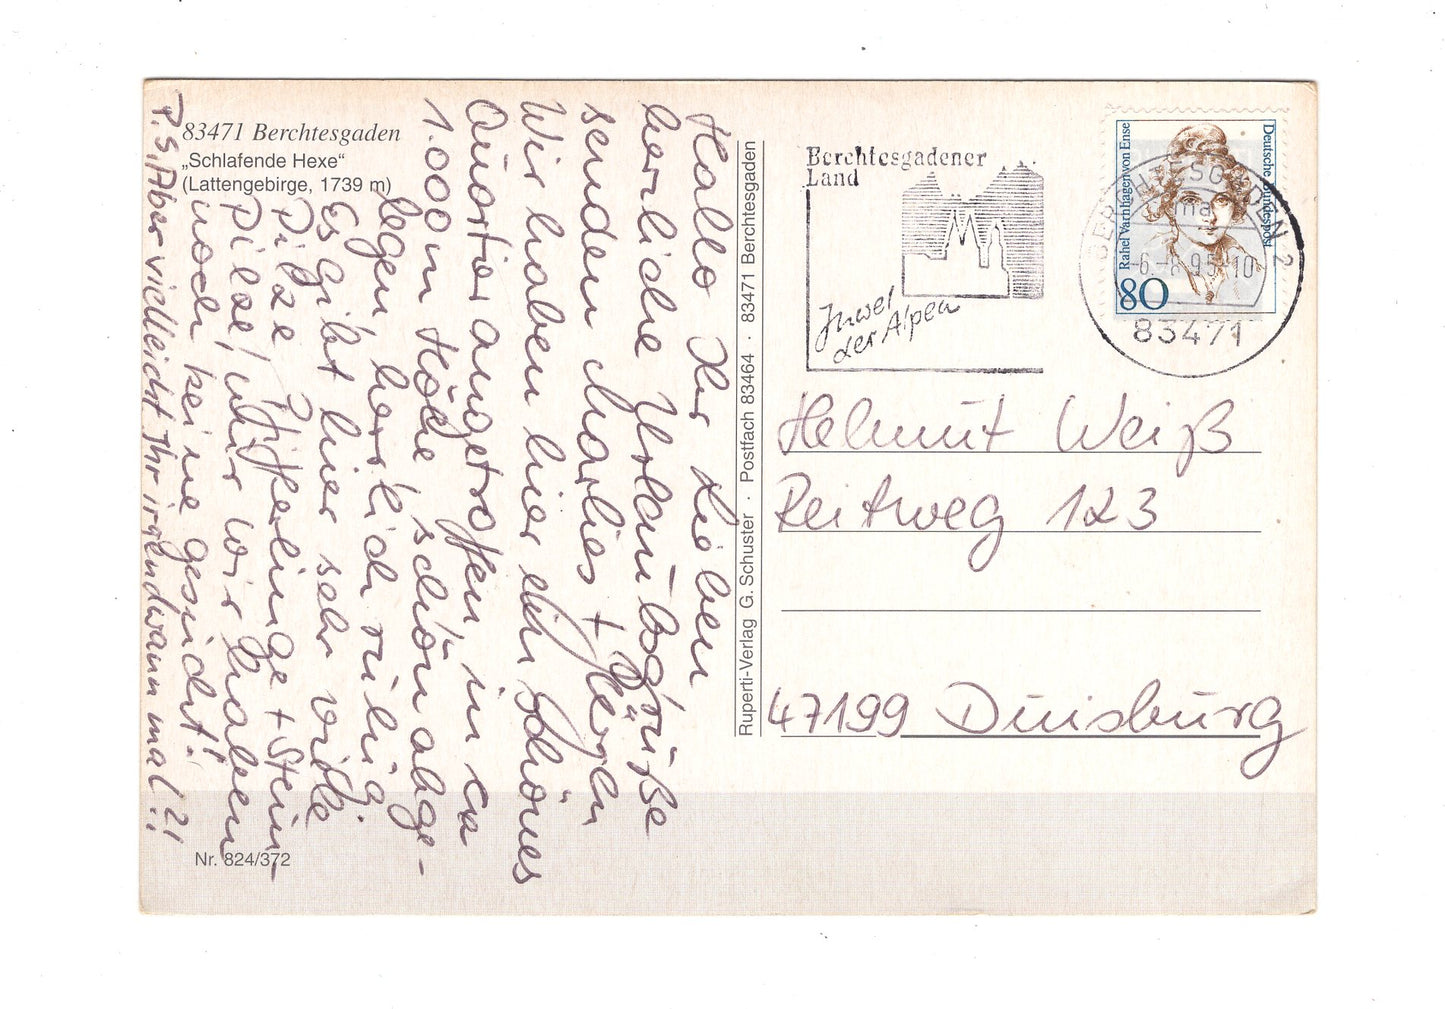 83471 Berchtesgaden
„Schlafende Hexe“
(Lattengebirge, 1739 m)
Hallo Ihr Lieben
herzliche Urlaubsgrüße
senden Marlies +
Wir haben hier ein schönes
Quartier angetroffen in ca
1.000 m Höhe schön abge-
legen herrlich ruhig.
Es gibt hier sehr viele
Pilze, Pfifferlinge + Stein-
Pilze, nur wir haben
noch keine gesucht!
P.S. Aber vielleicht Ihr irgendwann mal?!
Nr. 824/372
Ruperti-Verlag G. Schuster · Postfach 83464 · 83471 Berchtesgaden
Berchtesgadener
Land
Juwel
der Alpen
Deutsche Bundespost
Rahel Varnhagen von Ense
80
BERCHTESGADEN 2
-6.-8.95-10
83471
Helmut Weiß
Reitweg 123
47199 Duisburg